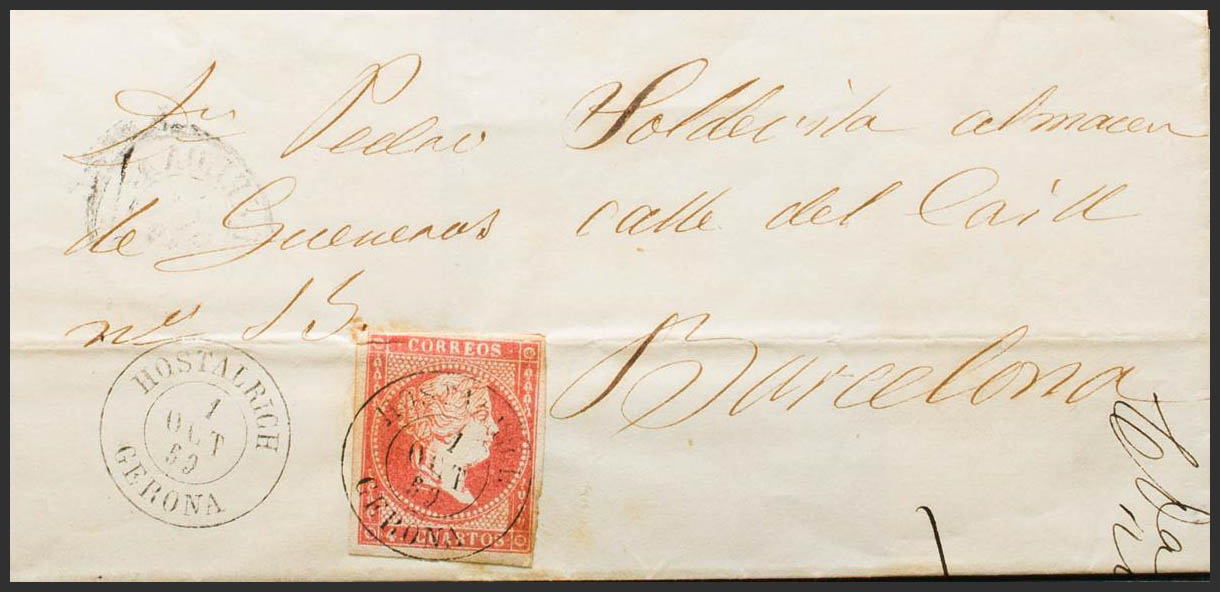 Sr Pedro Soldevila almacen
de Gueneros calle del Call
nº 15.
Barcelona
HOSTALRICH
1
OCT
59
GERONA
CORREOS
1
OCT
59
GERONA
CUARTOS